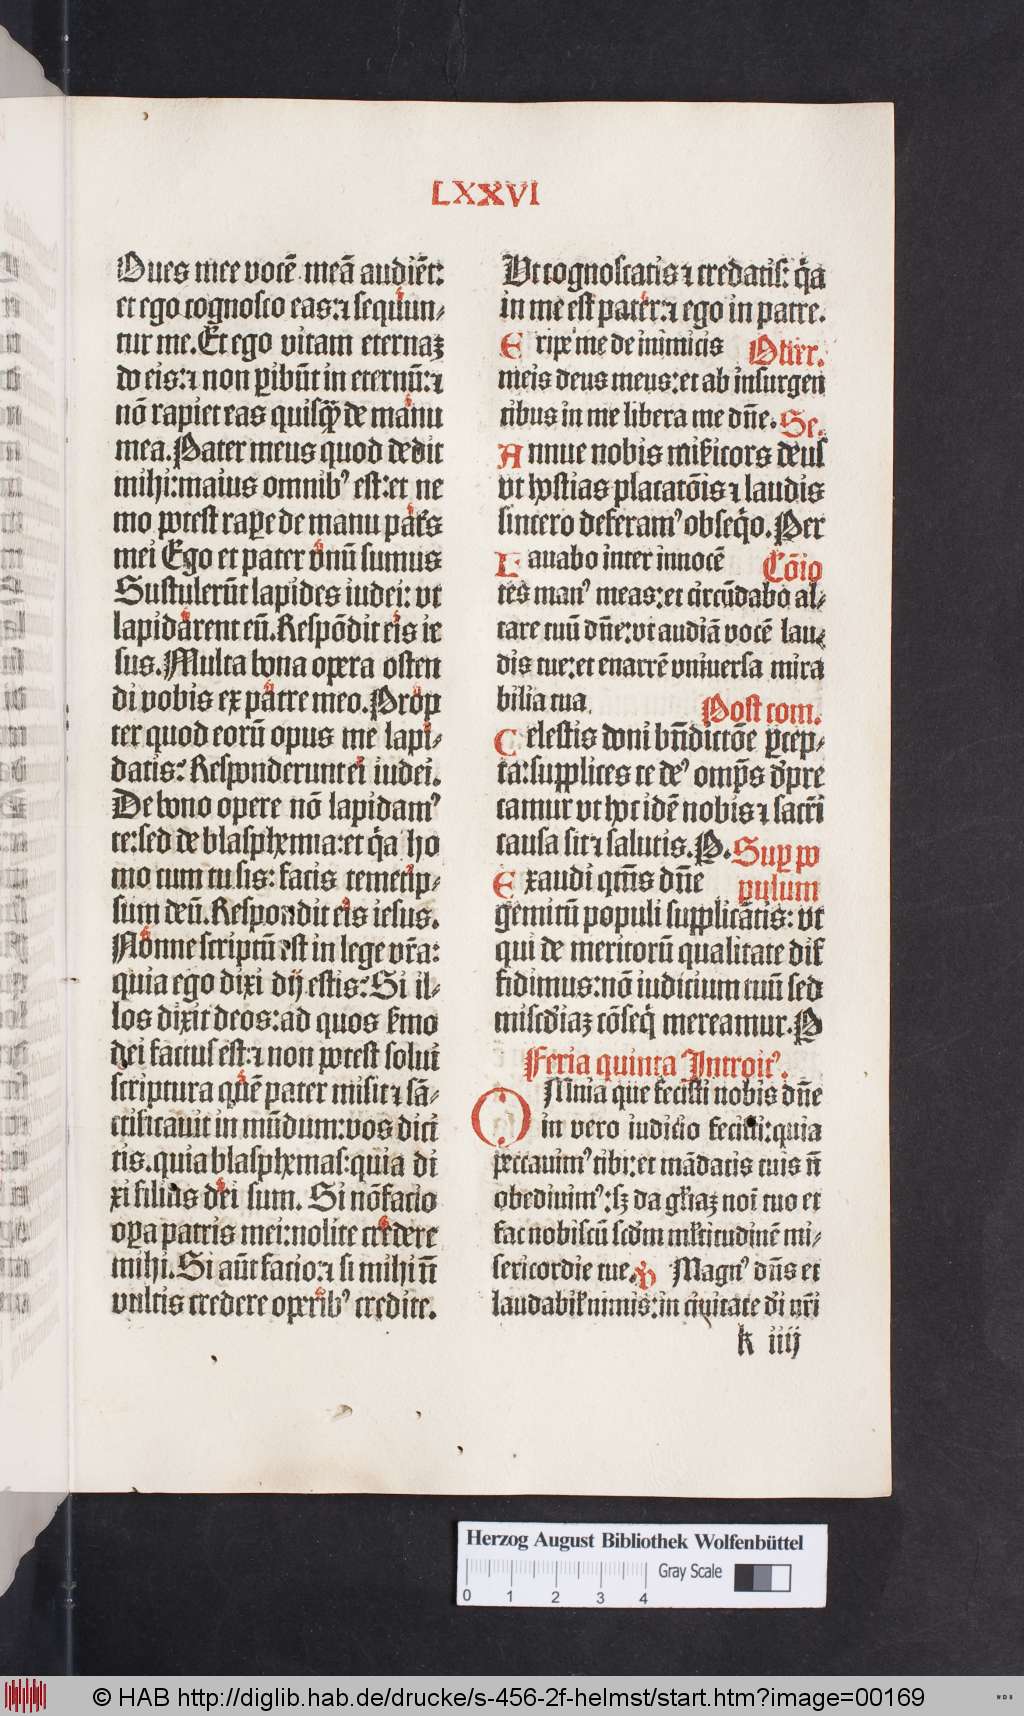 LXXVI
Oues mee vocē meā audiēt:
et ego cognosco eas:⁊ sequun⸗
tur me. Et ego vitam eternaꝫ
do eis:⁊ non ꝑibūt in eternū:⁊
nō rapiet eas quisq̄ȝ de manu
mea. Pater meus quod dedit
mihi:maius omnibꝰ est:et ne
mo potest rapere de manu pat̄s
mei Ego et pater vnū sumus
Sustulerūt lapides iudei: vt
lapidarent eū. Respōdit eis ie
sus. Multa bona opera osten
di vobis ex patre meo. Prop
ter quod eorū opus me lapi⸗
datis? Responderunt ei iudei.
De bono opere nō lapidamꝰ
te:sed de blasphemia:et q̄a ho
mo cum tu sis: facis temetip⸗
sum deū. Respondit eis iesus.
Nonne scriptū est in lege vr̄a:
quia ego dixi dij estis? Si il⸗
los dixit deos:ad quos s̄mo
dei factus est:⁊ non potest solui
scriptura quē pater misit ⁊ sā⸗
ctificauit in mūdum:vos dici
tis.quia blasphemas:quia di
xi filius dei sum. Si nō facio
oꝑa patris mei:nolite credere
mihi. Si aūt facio:⁊ si mihi n̄
vultis credere operibꝰ credite.
Vt cognoscatis ⁊ credatis: q̄a
in me est pater:⁊ ego in patre.
Eripe me de inimicis Offert.
meis deus meus:et ab insurgen
tibus in me libera me dn̄e. Se.
Annue nobis mis̄icors deus
vt hostias placatōis ⁊ laudis
sincero deferamꝰ obseq̄o. Per
Lauabo inter innocē Cōio
tes manꝰ meas:et circūdabo al⸗
tare tuū dn̄e:vt audiā vocē lau⸗
dis tue:et enarrē vniuersa mira
bilia tua Post com.
Celestis doni bn̄dictōe ꝑcep⸗
ta:supplices te deꝰ omp̄s dēpre
camur vt hoc idē nobis ⁊ sacr̄i
causa sit ⁊ salutis. P. Suꝑ po
Exaudi qm̄s dn̄e pulum
gemitū populi supplicātis: vt
qui de meritorū qualitate dif
fidimus:nō iudicium tuū sed
misc̄diaꝫ cōseq̄ mereamur. P
Feria quinta Introitꝰ.
OMnia que fecisti nobis dn̄e
in vero iudicio fecisti:quia
peccauimꝰ tibi:et mādatis tuis n̄
obediuimꝰ:sꝫ da gl̄iaꝫ noī tuo et
fac nobiscū scd̄m ml̄titudinē mi⸗
sericordie tue. V Magnꝰ dn̄s et
laudabil̄ nimis:in ciuitate di nr̄i
k iiij
Herzog August Bibliothek Wolfenbüttel
Gray Scale
0 1 2 3 4
© HAB http://diglib.hab.de/drucke/s-456-2f-helmst/start.htm?image=00169